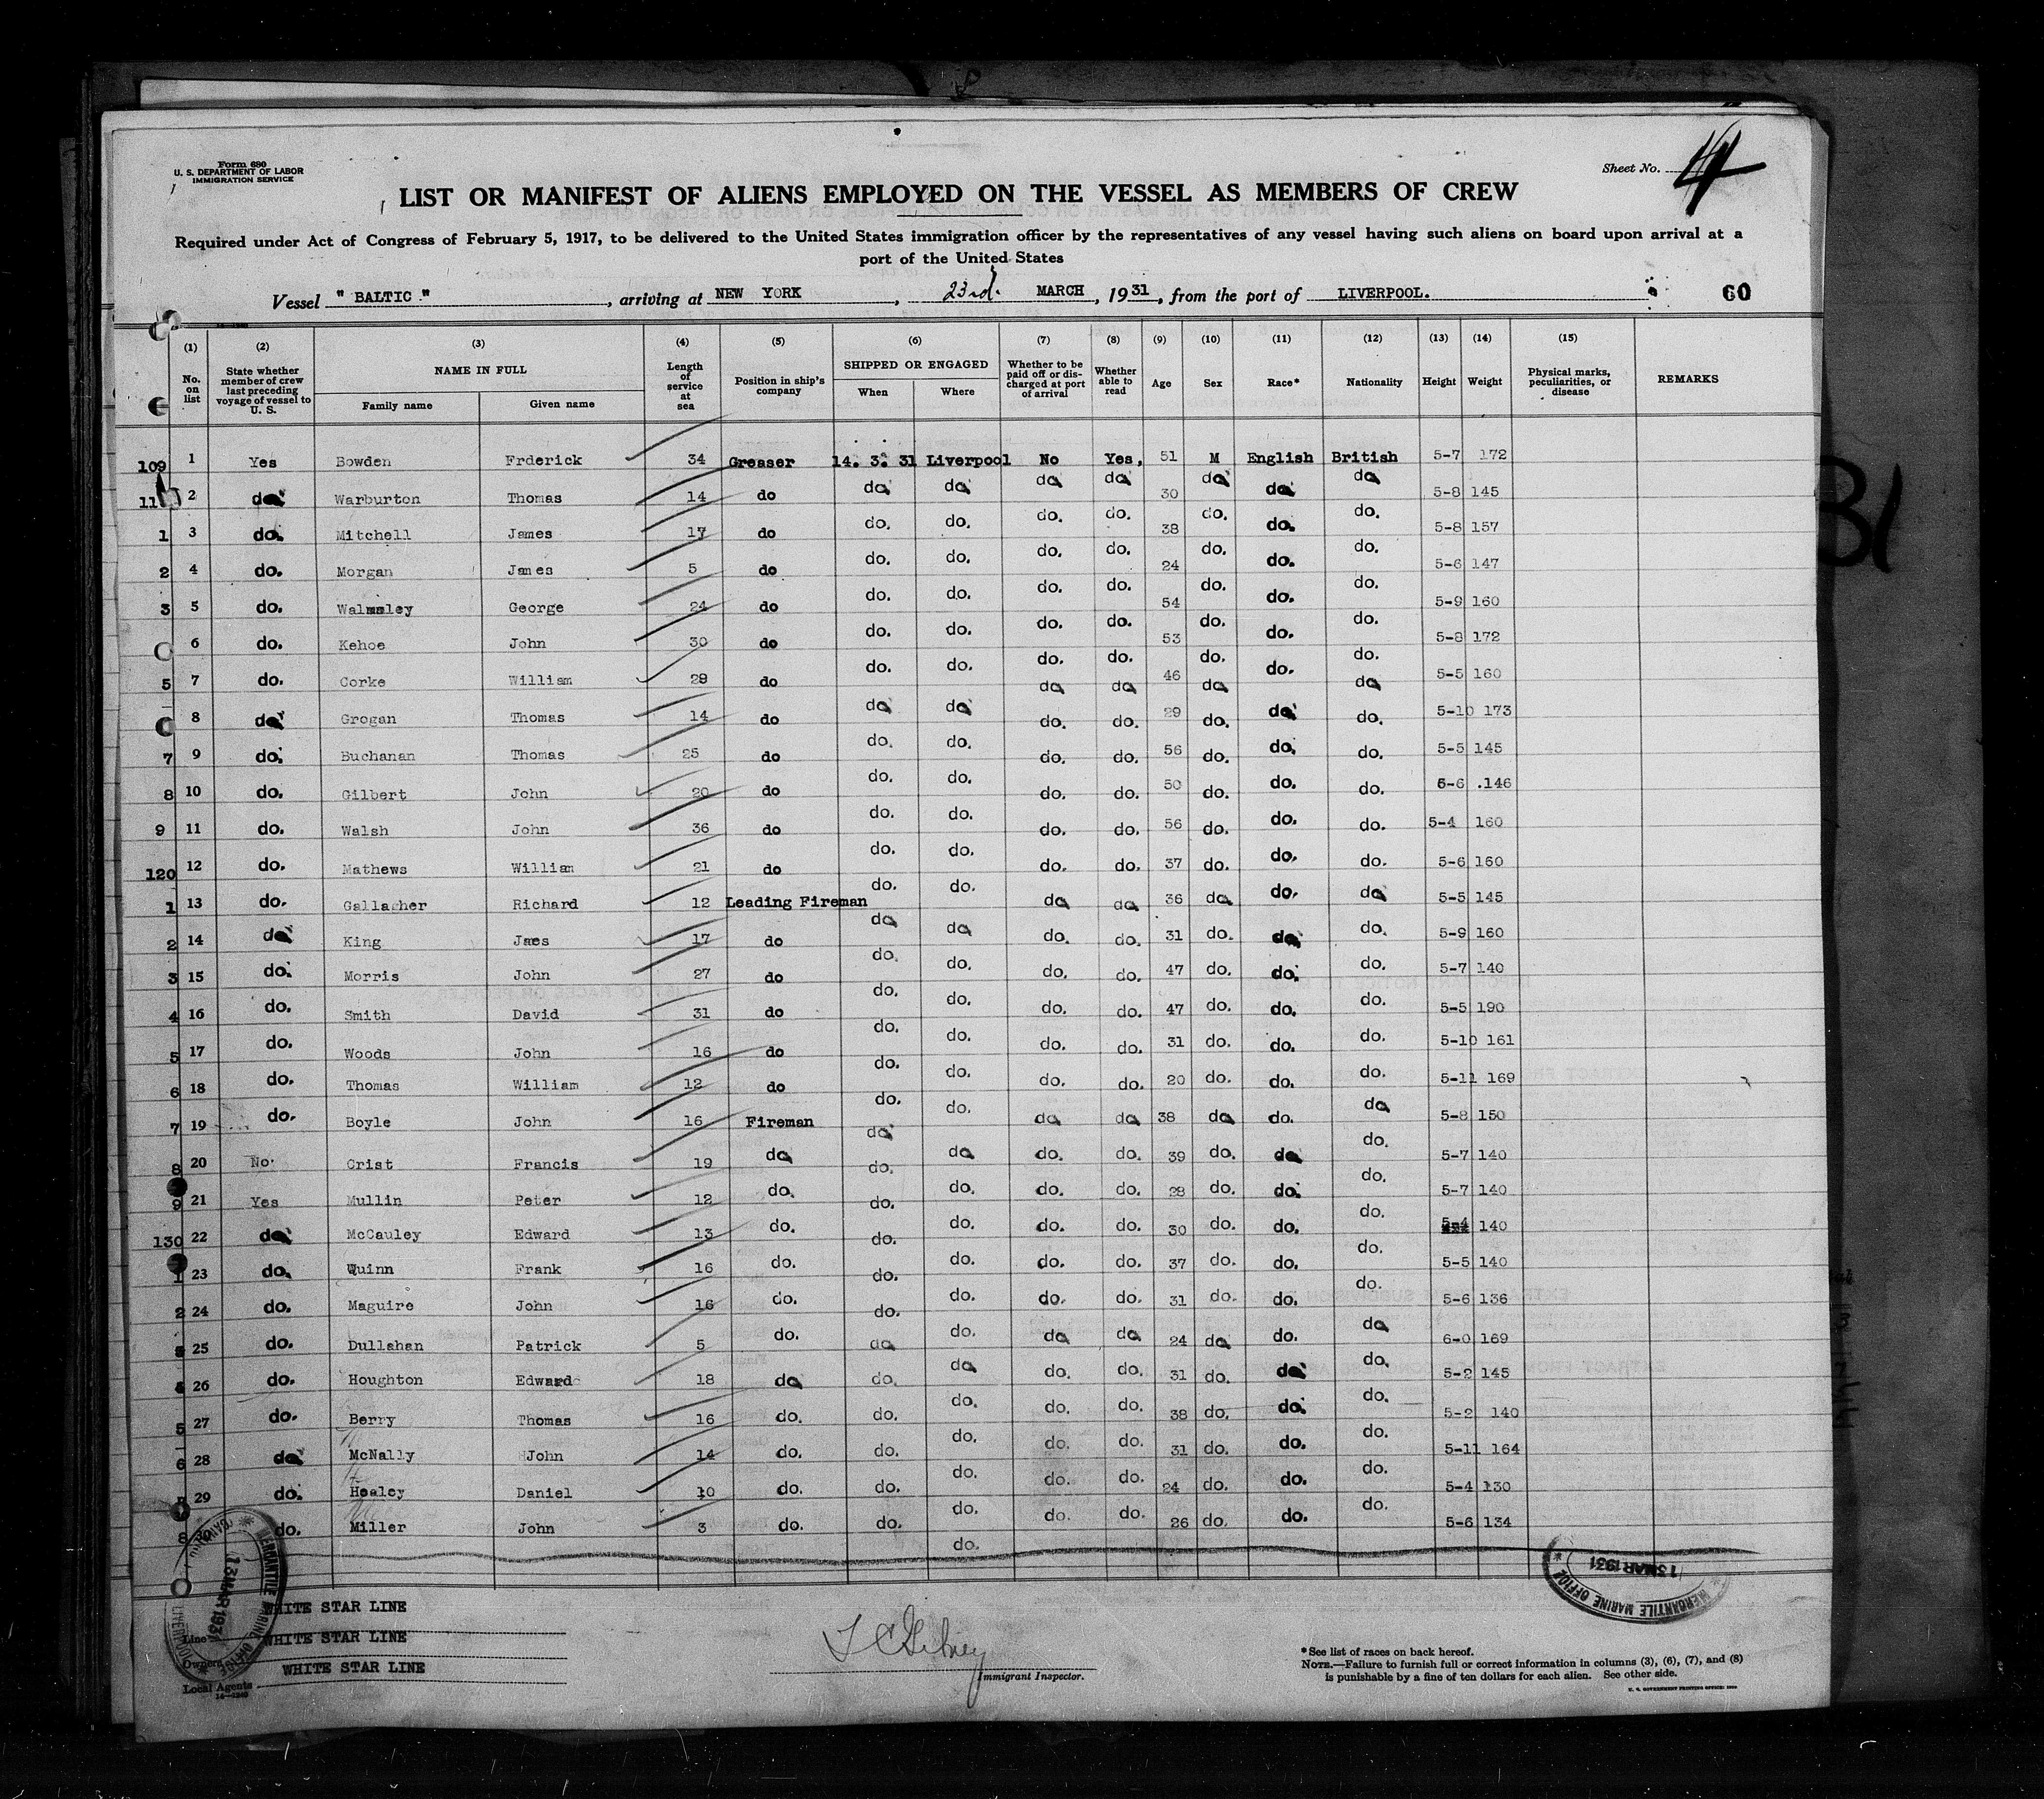 Form 680
U. S. DEPARTMENT OF LABOR
IMMIGRATION SERVICE
Sheet No. 4
LIST OR MANIFEST OF ALIENS EMPLOYED ON THE VESSEL AS MEMBERS OF CREW
Required under Act of Congress of February 5, 1917, to be delivered to the United States immigration officer by the representatives of any vessel having such aliens on board upon arrival at a
port of the United States
Vessel " BALTIC ", arriving at NEW YORK, 23rd. MARCH, 1931, from the port of LIVERPOOL. 60
(1) (2) (3) (4) (5) (6) (7) (8) (9) (10) (11) (12) (13) (14) (15)
No. on list State whether member of crew last preceding voyage of vessel to U. S. NAME IN FULL Family name Given name Length of service at sea Position in ship's company SHIPPED OR ENGAGED When Where Whether to be paid off or discharged at port of arrival Whether able to read Age Sex Race* Nationality Height Weight Physical marks, peculiarities, or disease REMARKS
109 1 Yes Bowden Frderick 34 Greaser 14. 3. 31 Liverpool No Yes, 51 M English British 5-7 172
11 2 do Warburton Thomas 14 do do do do do 30 do do do 5-8 145
1 3 do. Mitchell James 17 do do. do. do. do. 38 do. do. do. 5-8 157
2 4 do. Morgan James 5 do do. do. do. do. 24 do. do. do. 5-6 147
3 5 do. Walmsley George 24 do do. do. do. do. 54 do. do. do. 5-9 160
6 do. Kehoe John 30 do do. do. do. do. 53 do. do. do. 5-8 172
5 7 do. Corke William 29 do do. do. do. do. 46 do. do. do. 5-5 160
8 do Grogan Thomas 14 do do do do do 29 do do do 5-10 173
7 9 do. Buchanan Thomas 25 do do. do. do. do. 56 do. do. do. 5-5 145
8 10 do. Gilbert John 20 do do. do. do. do. 50 do. do. do. 6-6 .146
9 11 do. Walsh John 36 do do. do. do. do. 56 do. do. do. 5-4 160
120 12 do. Mathews William 21 do do. do. do. do. 37 do. do. do. 5-6 160
1 13 do. Gallagher Richard 12 Leading Fireman do. do. do do 36 do do. do 5-5 145
2 14 do King Jaes 17 do do do do. do. 31 do. do do. 5-9 160
3 15 do. Morris John 27 do do. do. do. do. 47 do. do. do. 5-7 140
4 16 do. Smith David 31 do do. do. do. do. 47 do. do. do. 5-5 190
5 17 do. Woods John 16 do do. do. do. do. 31 do. do. do. 5-10 161
6 18 do. Thomas William 12 do do. do. do. do. 20 do. do. do. 5-11 169
7 19 do. Boyle John 16 Fireman do. do. do do 38 do do. do 5-8 150
8 20 No Crist Francis 19 do do do do. do. 39 do. do do. 5-7 140
9 21 Yes Mullin Peter 12 do. do. do. do. do. 28 do. do. do. 5-7 140
130 22 do McCauley Edward 13 do. do. do. do. do. 30 do. do. do. 5-4 140
1 23 do. Quinn Frank 16 do. do. do. do. do. 37 do. do. do. 5-5 140
2 24 do. Maguire John 16 do. do. do. do. do. 31 do. do. do. 5-6 136
25 do. Dullahan Patrick 5 do. do do. do do 24 do do. do 6-0 169
26 do. Houghton Edward 18 do do. do do. do. 31 do. do do. 5-2 145
5 27 do. Berry Thomas 16 do. do. do. do. do. 38 do. do. do. 5-2 140
6 28 do McNally John 14 do. do. do. do. do. 31 do. do. do. 5-11 164
29 do. Healey Daniel 10 do. do. do. do. do. 24 do. do. do. 5-4 130
8 do. Miller John 3 do. do. do. do. do. 26 do. do. do. 5-6 134
do.
MERCANTILE MARINE OFFICE
13 MAR 1931
LIVERPOOL
MERCANTILE MARINE OFFICE
13 MAR 1931
WHITE STAR LINE
Line WHITE STAR LINE
Owners
Local Agents WHITE STAR LINE
14—1240
Immigrant Inspector.
*See list of races on back hereof.
NOTE.—Failure to furnish full or correct information in columns (3), (6), (7), and (8)
is punishable by a fine of ten dollars for each alien. See other side.
U. S. GOVERNMENT PRINTING OFFICE: 1930
31